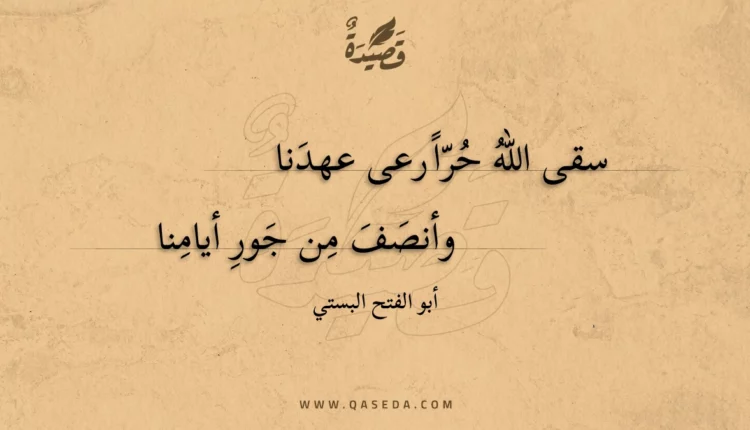 قَصِيدَةٌ
سقى اللهُ حُرّاً رعى عهدَنا
وأنصَفَ مِن جَورِ أيامِنا
أبو الفتح البستي
WWW.QASEDA.COM